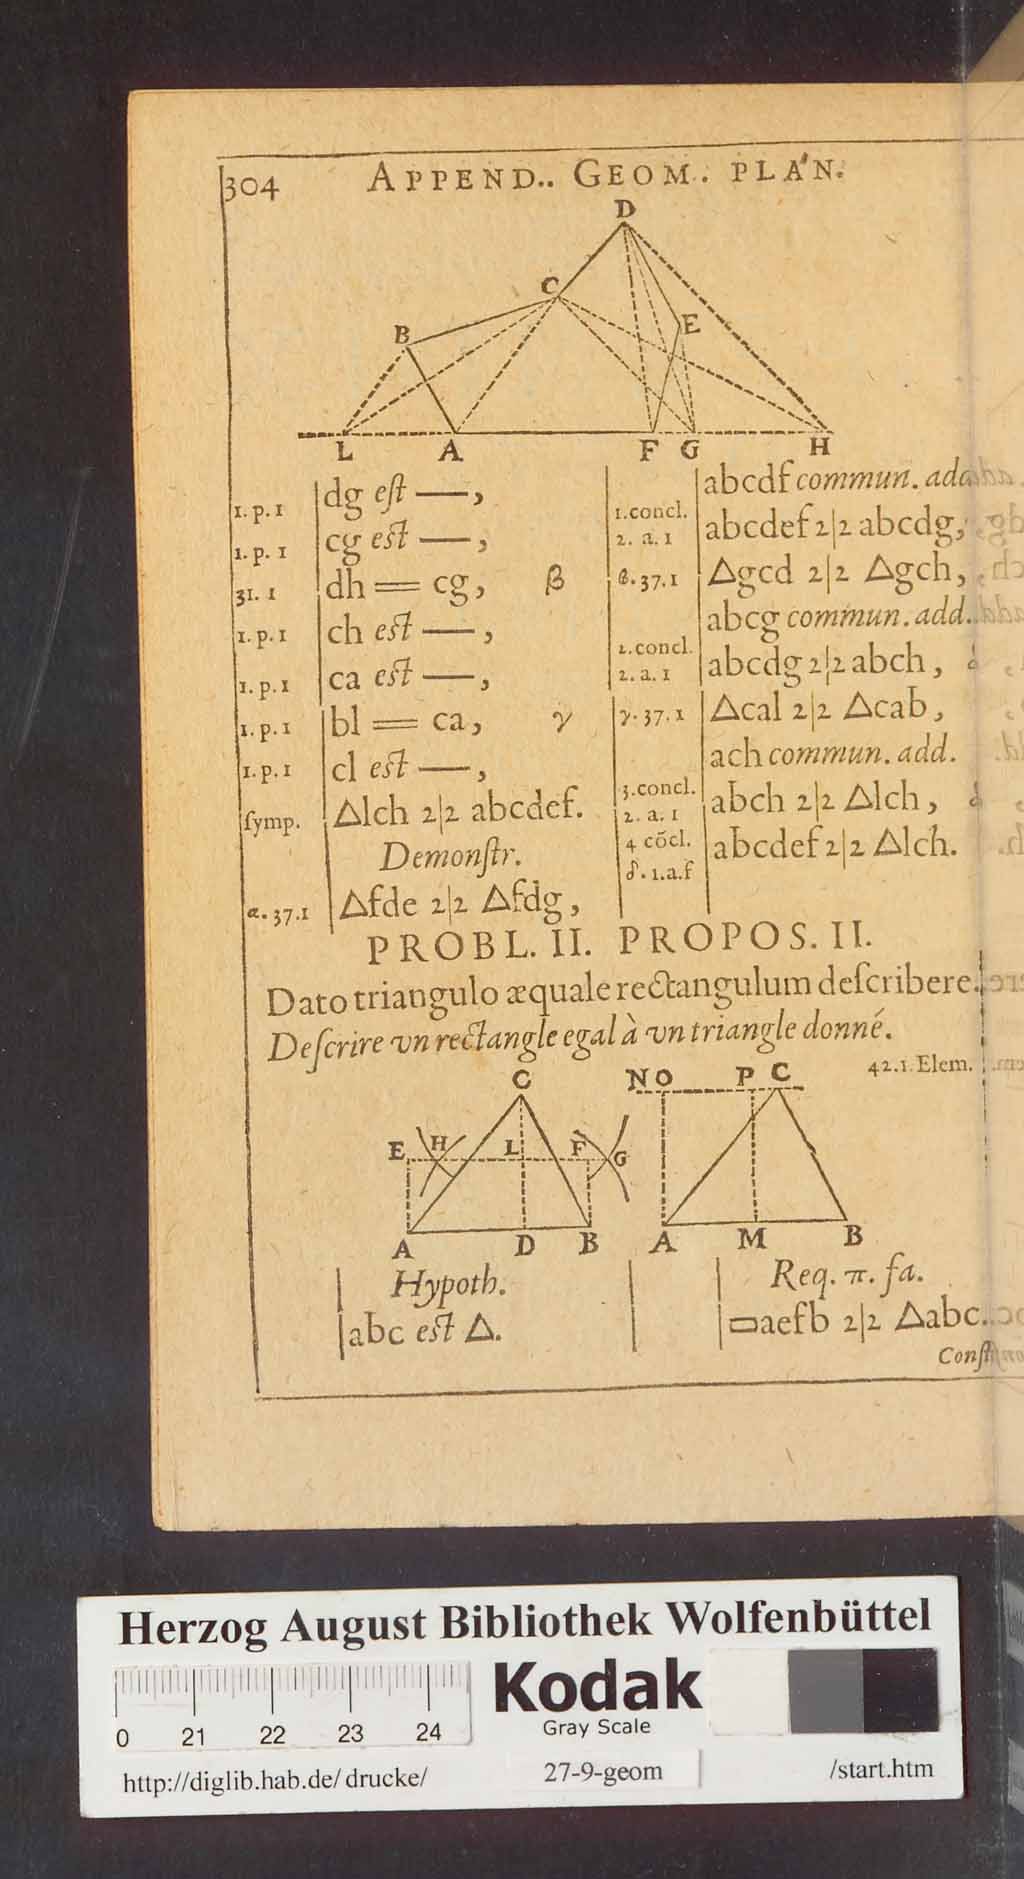 304 APPEND.. GEOM. PLAN.
D
C
B
E
L A F G H
1. p. 1 dg eſt —,
1. p. 1 cg est —,
31. 1 dh = cg, β
1. p. 1 ch est —,
1. p. 1 ca est —,
1. p. 1 bl = ca, γ
1. p. 1 cl est —,
ſymp. △lch 2|2 abcdef.
Demonſtr.
α. 37.1 △fde 2|2 △fdg,
abcdf commun. add
1.concl.
2. a. 1 abcdef 2|2 abcdg,
β. 37.1 △gcd 2|2 △gch,
abcg commun. add.
2.concl.
2. a. 1 abcdg 2|2 abch,
γ. 37.1 △cal 2|2 △cab,
ach commun. add.
3.concl.
2. a. 1 abch 2|2 △lch,
4 cōcl.
δ. 1.a.f abcdef 2|2 △lch.
PROBL. II. PROPOS. II.
Dato triangulo æquale rectangulum deſcribere.
Deſcrire vn rectangle egal à vn triangle donné.
42.1. Elem.
C N O P C
E H L F G
A D B A M B
Hypoth.
abc est △.
Req. π. fa.
▭aefb 2|2 △abc.
Conſt
Herzog August Bibliothek Wolfenbüttel
Kodak
Gray Scale
0 21 22 23 24
http://diglib.hab.de/drucke/ 27-9-geom /start.htm